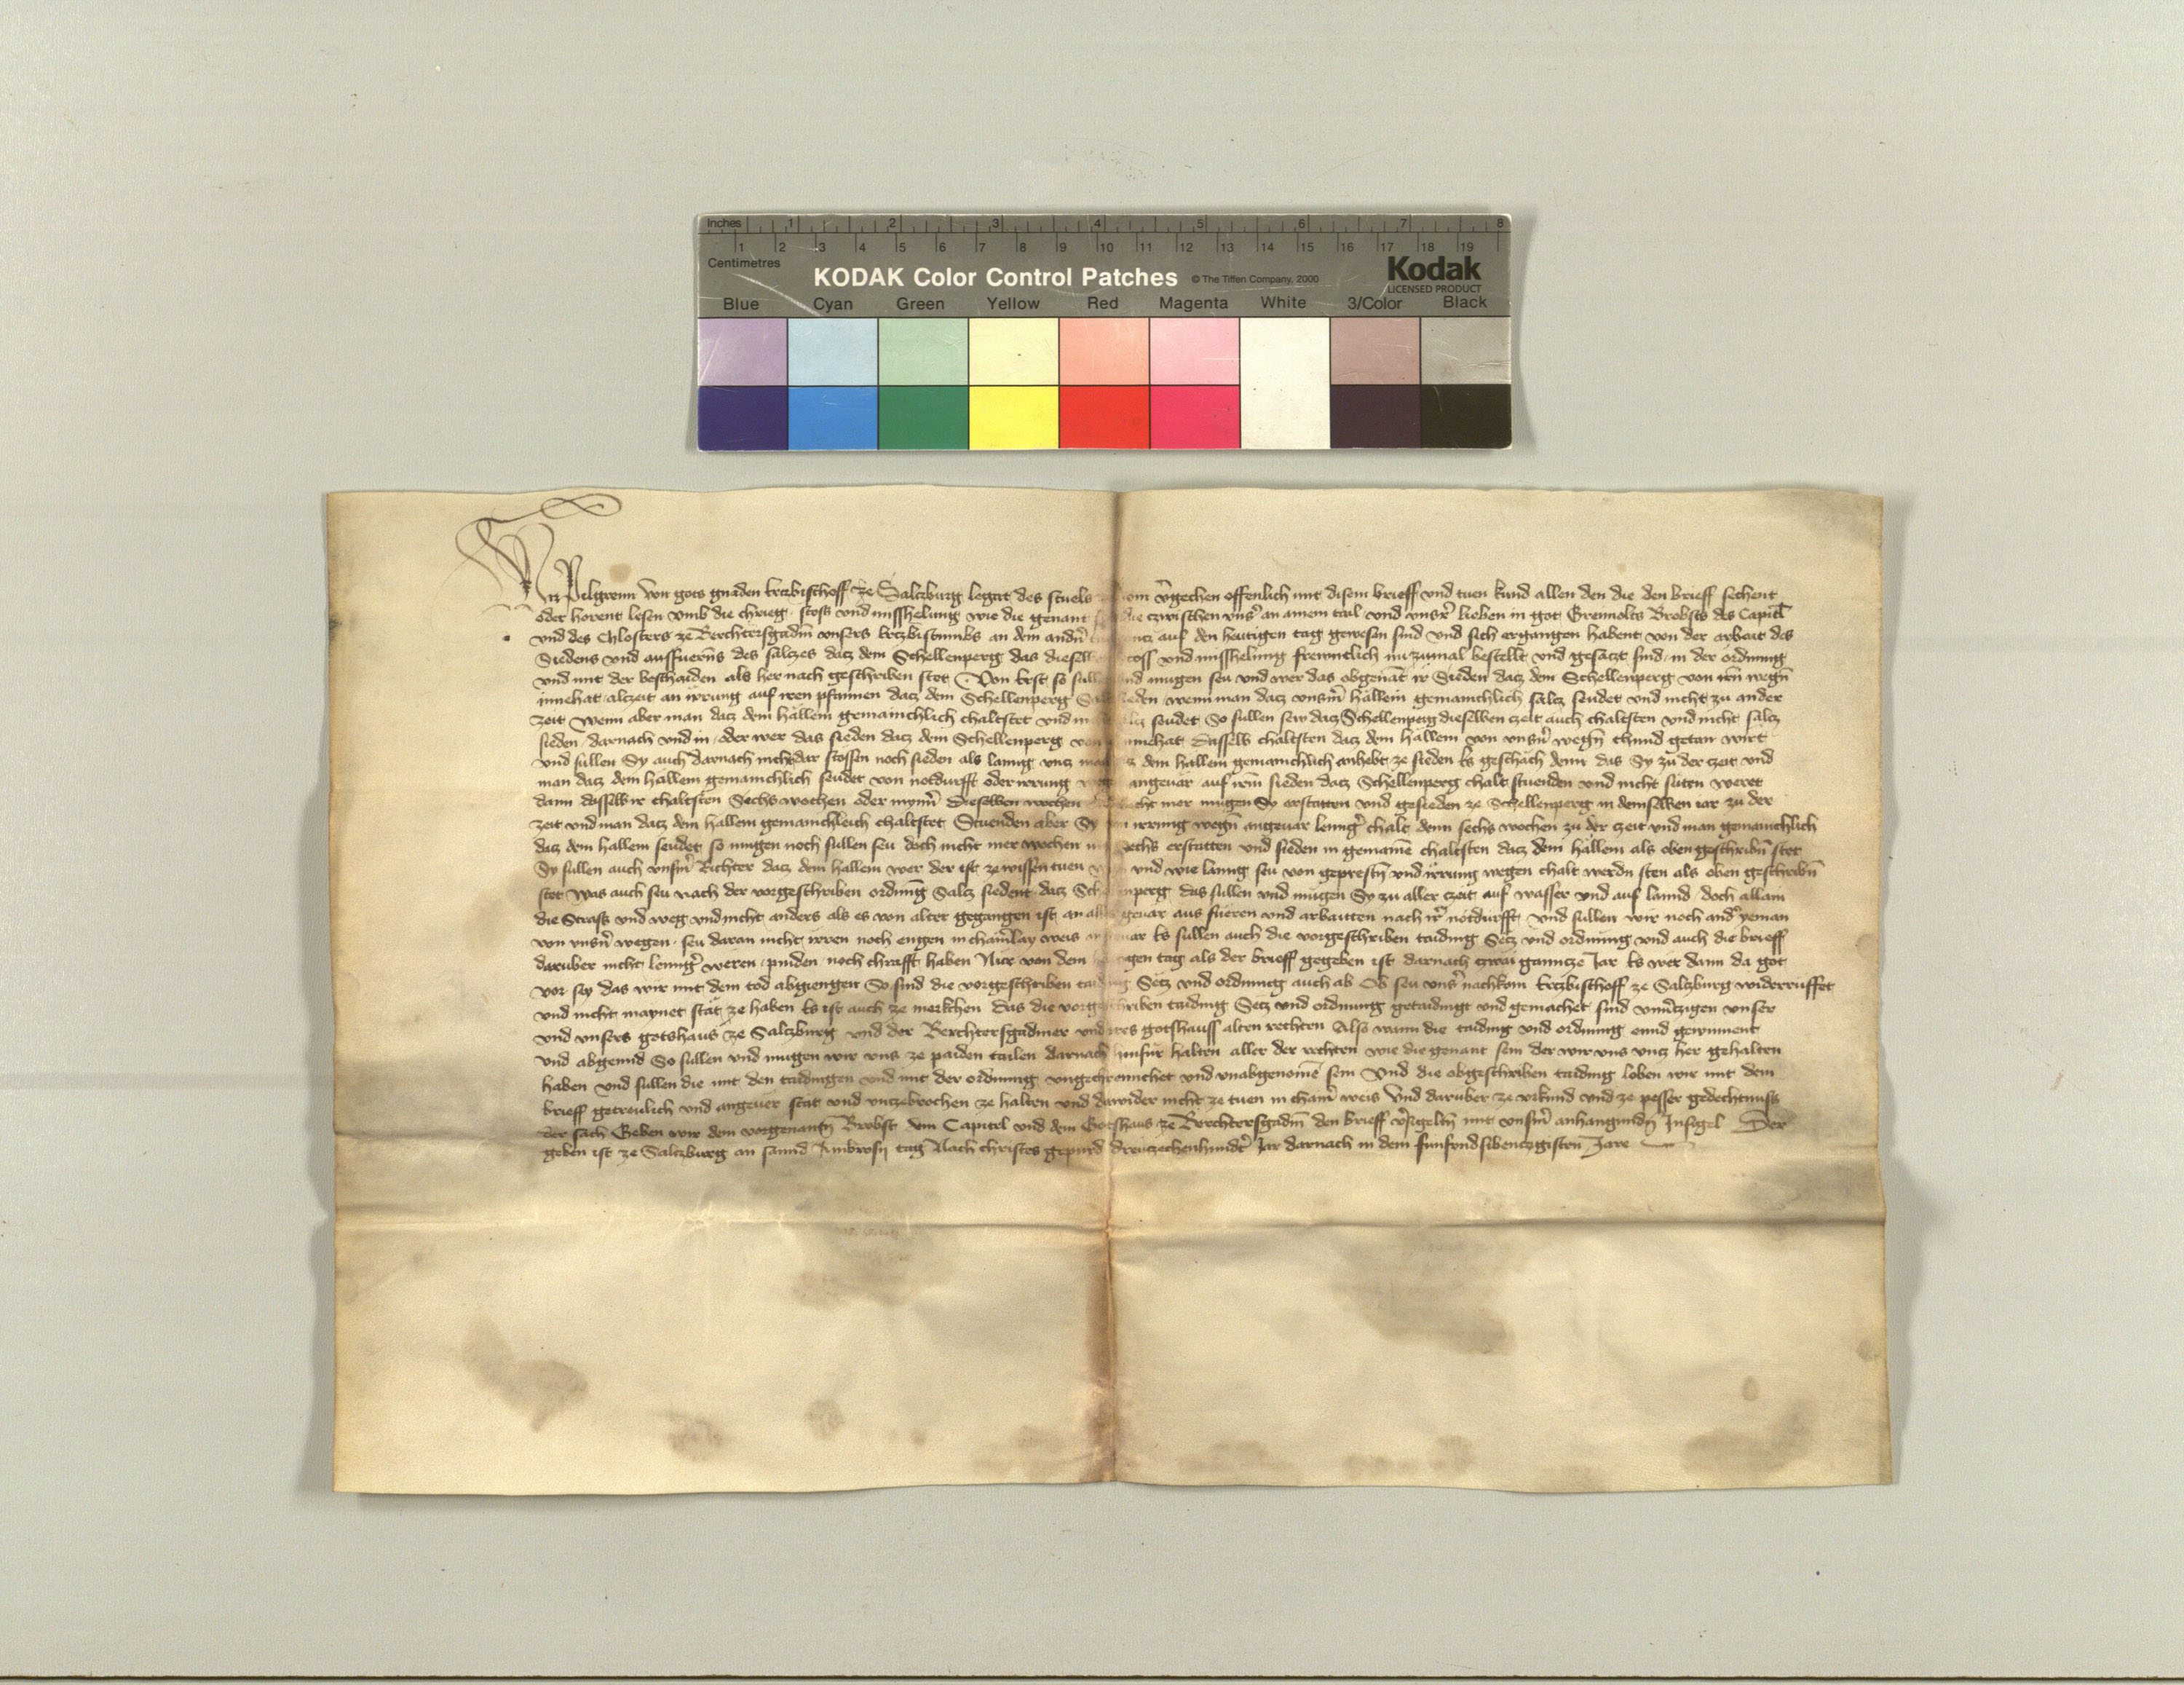 Inches 1 2 3 4 5 6 7 8
1 2 3 4 5 6 7 8 9 10 11 12 13 14 15 16 17 18 19
Centimetres
KODAK Color Control Patches © The Tiffen Company, 2000 Kodak
LICENSED PRODUCT
Blue Cyan Green Yellow Red Magenta White 3/Color Black
Wir Pilgreim von gots gnaden Ertzbischoff ze Saltzburg legat des stuels ze Rom v̄gechen offenlich mit disem brieff vnd tuen kund allen den die den brieff sechent
oder horent lesen vmb die chrieg stoss vnd misshelung wie die genant die czwischen vns̄ an ainem tail vnd vnsr̄ lieben in got Greimolts Brobsts des Capitl
vnd des Chlosters ze Berchtersgadm̄ vnsers Ertzbistumbs an dem andn̄ vntz auf den heutigen tag gewesen sind vnd sich ergangen habent von der arbeit des
Siedens vnd ausfuerns des saltzes datz dem Schellenperg das dieselb stoss vnd misshelung frewntlich nu zumal bestellt vnd gesatzt sind in der ordnung
vnd mit der beschaiden als her nach geschriben stet Von Erst so sulln vnd mugen seu vnd wer das obgenāt ir Sieden datz dem Schellenperg von irn̄ wegn̄
innehat alzeit an irrung auf iren pfannen datz dem Schellenperg Saltz sieden wenn man datz vnsm̄ hallein gemainchlich saltz seudet vnd nicht zu ander
zeit Wenn aber man datz dem hallein gemainchlich chaltstet vnd nicht saltz seudet So sullen sew datz Schellenperg dieselben czeit auch chaltsten vnd nicht saltz
sieden darnach vnd in oder wer das sieden datz dem Schellenperg von innehat dasselb chaltsten datz dem hallein von vnsn̄ wegn̄ chund getan wirt
vnd sullen Sy auch darnach nicht dar stossen noch sieden als lanng vntz man datz dem hallein gemainchlich anhebt ze sieden Es geschäch denn das Sy zu der zeit vnd
man datz dem hallein gemainchlich seudet von notdurfft oder irrung wegn angeuär auf irm̄ sieden datz Schellenperg chalt stuenden vnd nicht suten weret
dann dasselb ir chaltsten Sechs wochen oder mynn̄ dieselben wochen nicht mer mugen Sy erstatten vnd gesieden ze Schellenperg in demselben iar zu der
zeit vnd man datz dem hallein gemainchleich chaltstet Stuenden aber Sy von irrung wegn̄ angeuar lennḡ chalt denn sechs wochen zu der czeit vnd man gemainchlich
datz dem hallein seudet so mugen noch sullen seu doch nicht mer wochen nur Sechs erstatten vnd sieden in gemainē chaltsten datz dem hallein als oben geschribn̄ stet
Sy sullen auch vnsm̄ Richter datz dem hallein wer der ist ze wissen tuen vnd wie lanng seu von geprestn̄ vnd irrung wegen chalt werdn sten als oben geschribn̄
stet Was auch seu nach der vorgeschriben ordnung Saltz siedent datz Schellenperg das sullen vnd mugen Sy zu aller czeit auf wasser vnd auf lannd doch allain
die Strass vnd weg vnd nicht anders als es von alter gegangen ist an alles geuar aus fueren vnd arbaitten nach ir̄ notdurfft vnd sullen wir noch andr̄ yeman
von vnsn̄ wegen seu daran nicht irren noch engen in chainrlay weis angeuar Es sullen auch die vorgeschriben taiding Setz vnd ordnung vnd auch die brieff
daruber nicht lennḡ weren pinden noch chrafft haben Nur von dem heutigen tag als der brieff gegeben ist darnach zwai ganntze Jar Es wer dann da got
vor sey das wir mit dem tod abgiengen So sind die vorgeschriben taiding Setz vnd ordnung auch ab Ob seu vns̄ nachkom Ertzbischoff ze Saltzburg widerrüffet
vnd nicht maynet stät ze haben Es ist auch ze merkchen das die vorgeschriben taiding Setz vnd ordnung getaidingt vnd gemachet sind vnuertzigen vnser
vnd vnsers gotshaus ze Saltzburg vnd der Berchtersgadmer vnd irs gotshauss alten rechten Also wann die taiding vnd ordnung ennd gewinnent
vnd abgennd So sullen vnd mugen wir vns ze paiden tailen darnach hinfur halten aller der rechten wie die genant sein der wir vns vntz her gehalten
haben vnd sullen die mit den taidingen vnd mit der ordnung vngechrennchet vnd vnabgenomē sein Vnd die obgeschriben taiding loben wir mit dem
brieff getreulich vnd angeuer stät vnd vntzebrochen ze halten vnd dawider nicht ze tuen in chainr̄ weis Vnd daruber ze vrkund vnd ze pesser gedechtnuss
der sach Geben wir dem vorgenantn̄ Brobst dem Capitel vnd dem Gotshaus ze Berchtersgadm̄ den brieff v̄sigeltn̄ mit vnsm̄ anhangundn̄ Insigel Der
geben ist ze Saltzburg an sannd Ambrosy tag Nach christes gepurd dreutzechenhundt̄ Jar darnach in dem funfondsibentzgistm̄ Jare